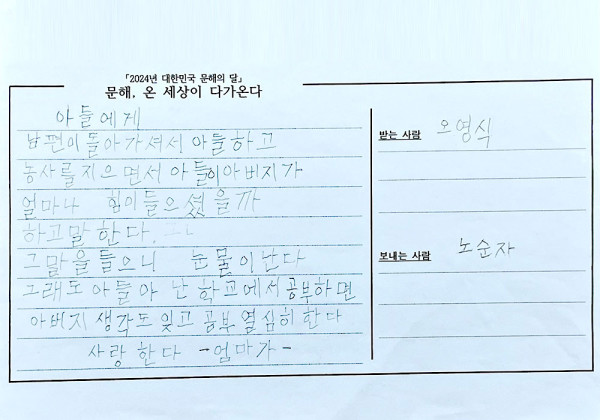 「2024년 대한민국 문해의 달」
문해, 온 세상이 다가온다
아들에게
남편이 돌아가셔서 아들하고
농사를 지으면서 아들이 아버지가
얼마나 힘이들으셨을까
하고말 한다.
그말을 들으니 눈물이난다
그래도 아들아 난 학교에서 공부하면
아버지 생각도 잊고 공부 열심히 한다
사랑한다 -엄마가-
받는 사람 오영식
보내는 사람 노순자